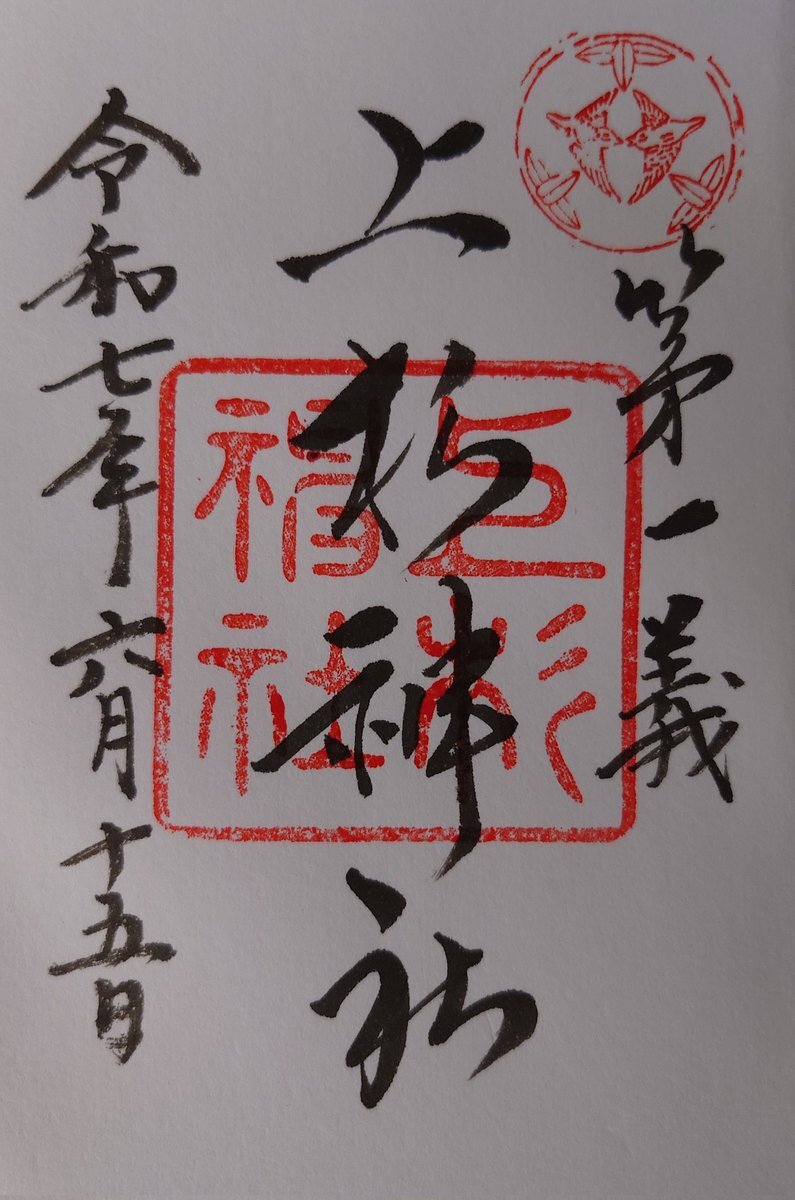 第一義
上杉神社
令和七年六月十五日
上杉神社